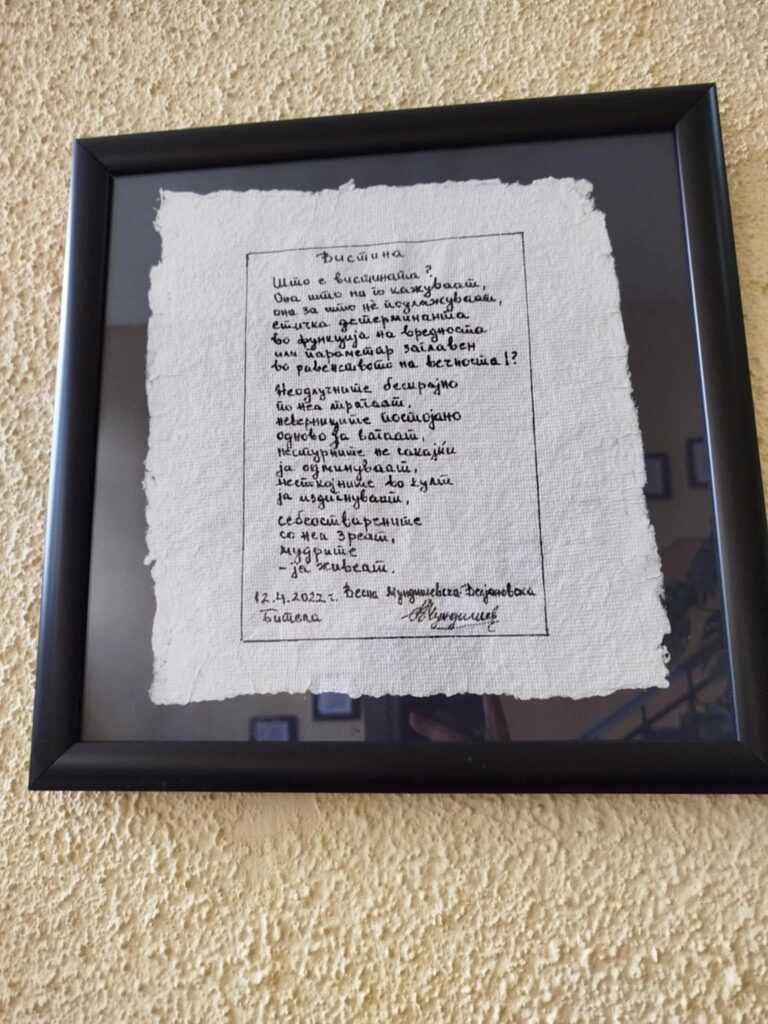 Вистина
Што е вистината?
Она што ни го кажуваат,
она за што нѐ подлажуваат,
етичка детерминанта
во функција на вредноста
или параметар заглавен
во равенството на вечноста!?
Неодлучните бескрајно
по неа трагаат,
неверниците постојано
одново ја вагаат,
нестурните не сакајќи
ја одминуваат,
нескојните во култ
ја издигнуваат,
себеостварените
со неа зреат,
мудрите
- ја живеат.
12.4.2022 г. Весна Мундишевска-Велјановска
Битола